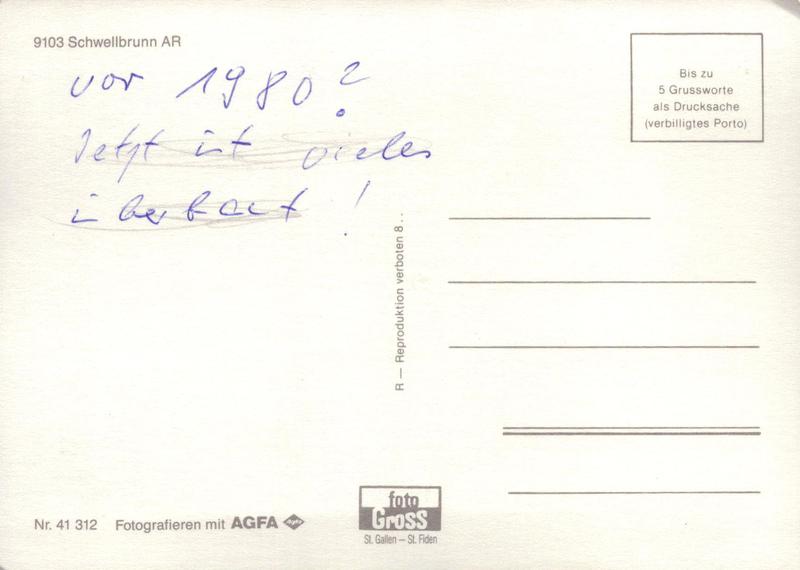 9103 Schwellbrunn AR
vor 1980?
Jetzt ist vieles
überbaut!
Bis zu
5 Grussworte
als Drucksache
(verbilligtes Porto)
R — Reproduktion verboten 8..
Nr. 41 312 Fotografieren mit AGFA Agfa
foto
Gross
St. Gallen — St. Fiden